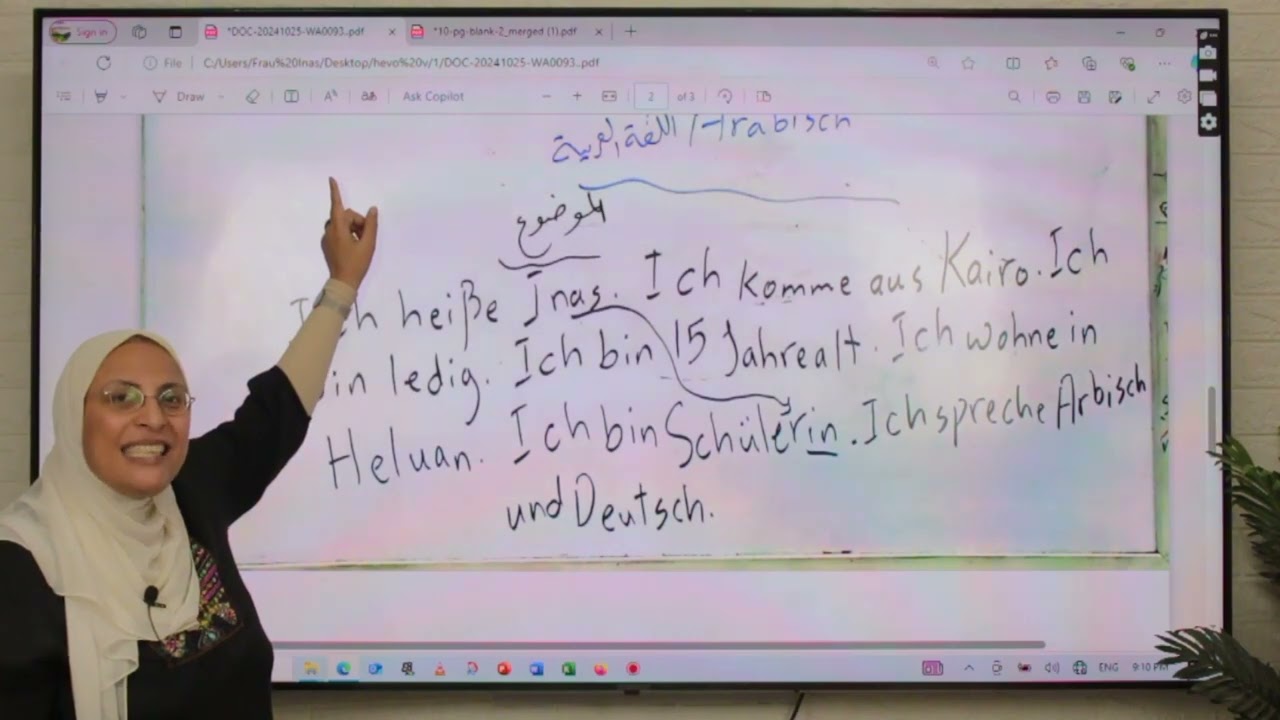 Sign in
*DOC-20241025-WA0093..pdf
*10-pg-blank-2_merged (1).pdf
File C:/Users/Frau%20Inas/Desktop/hevo%20v/1/DOC-20241025-WA0093..pdf
Draw Ask Copilot 2 of 3
اللغة العربية / Arabisch
الموضوع
Ich heiße Inas. Ich komme aus Kairo. Ich
bin ledig. Ich bin 15 Jahre alt. Ich wohne in
Heluan. Ich bin Schülerin. Ich spreche Arbisch
und Deutsch.
ENG 9:10 PM